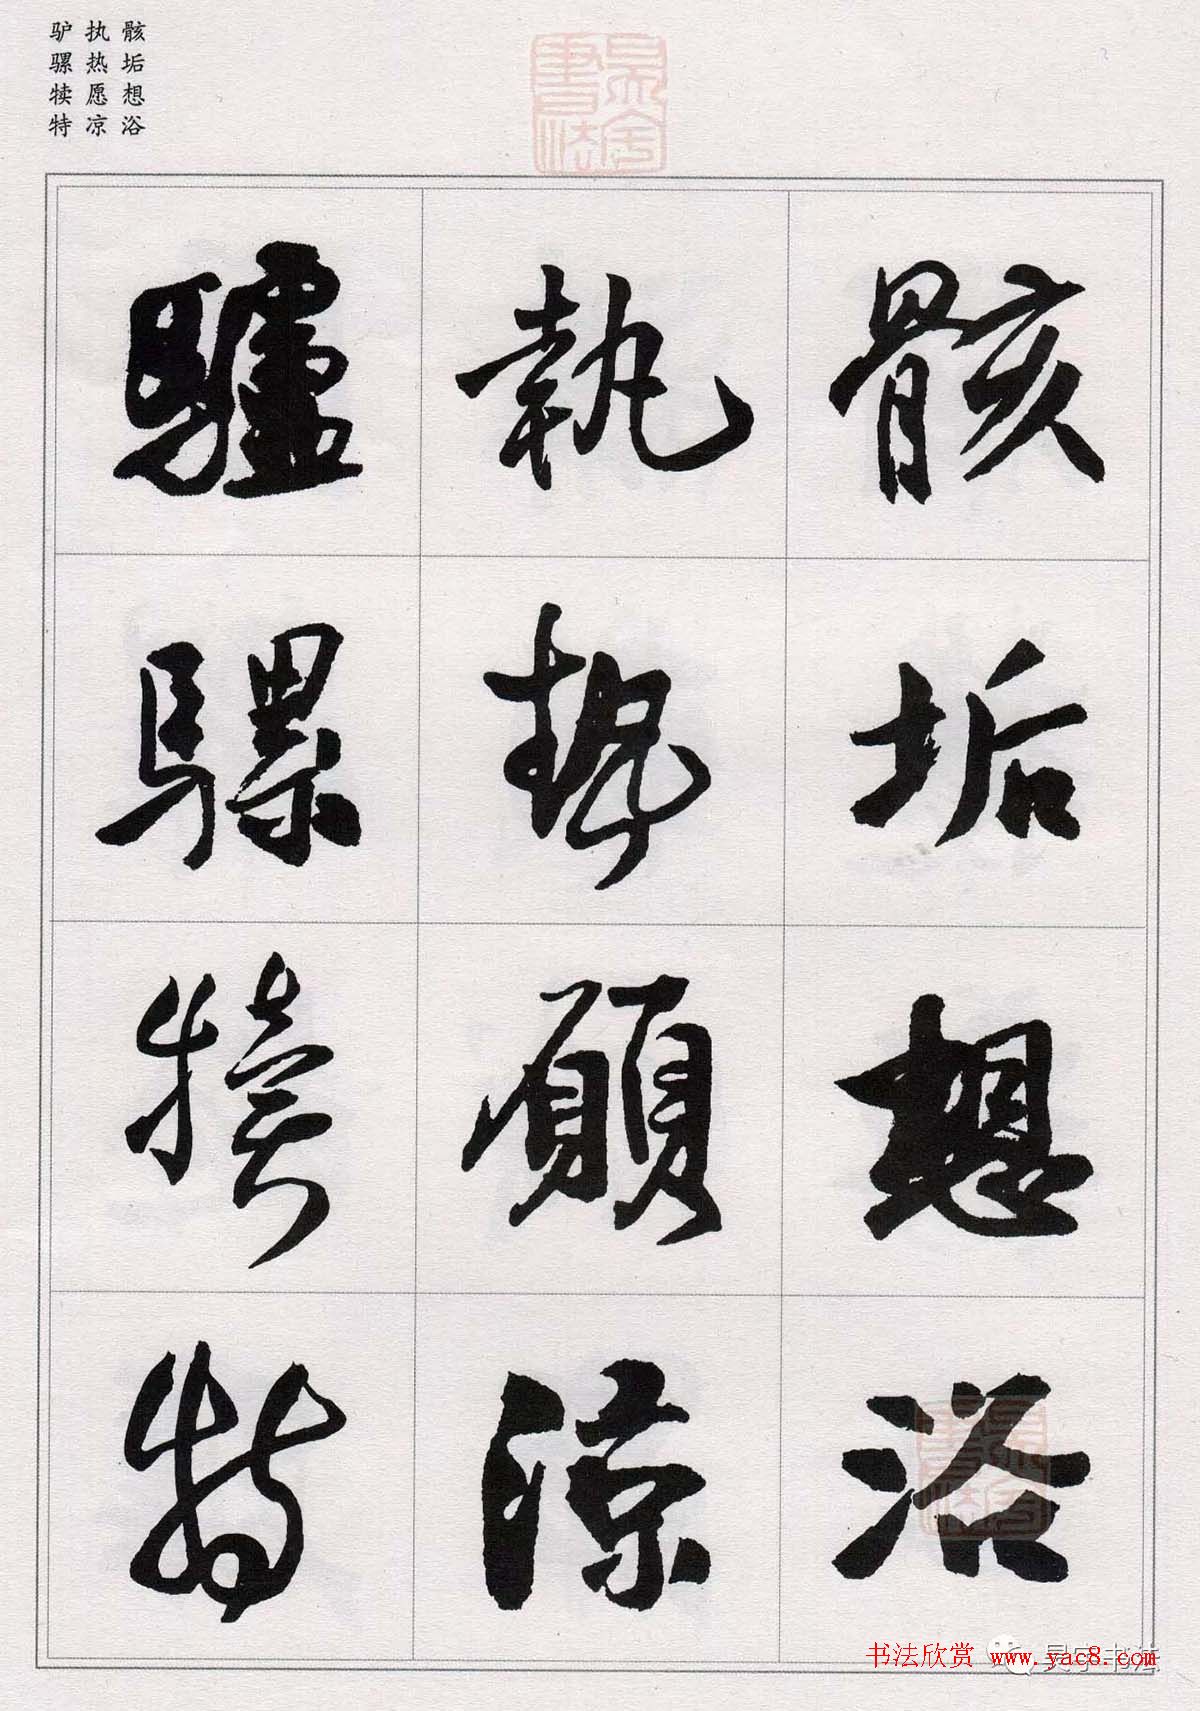 骸垢想浴
执热愿凉
驴骡犊特
骸垢想浴
執熱願涼
驢騾犢特
书法欣赏 www.yac8.com
昊宇书法